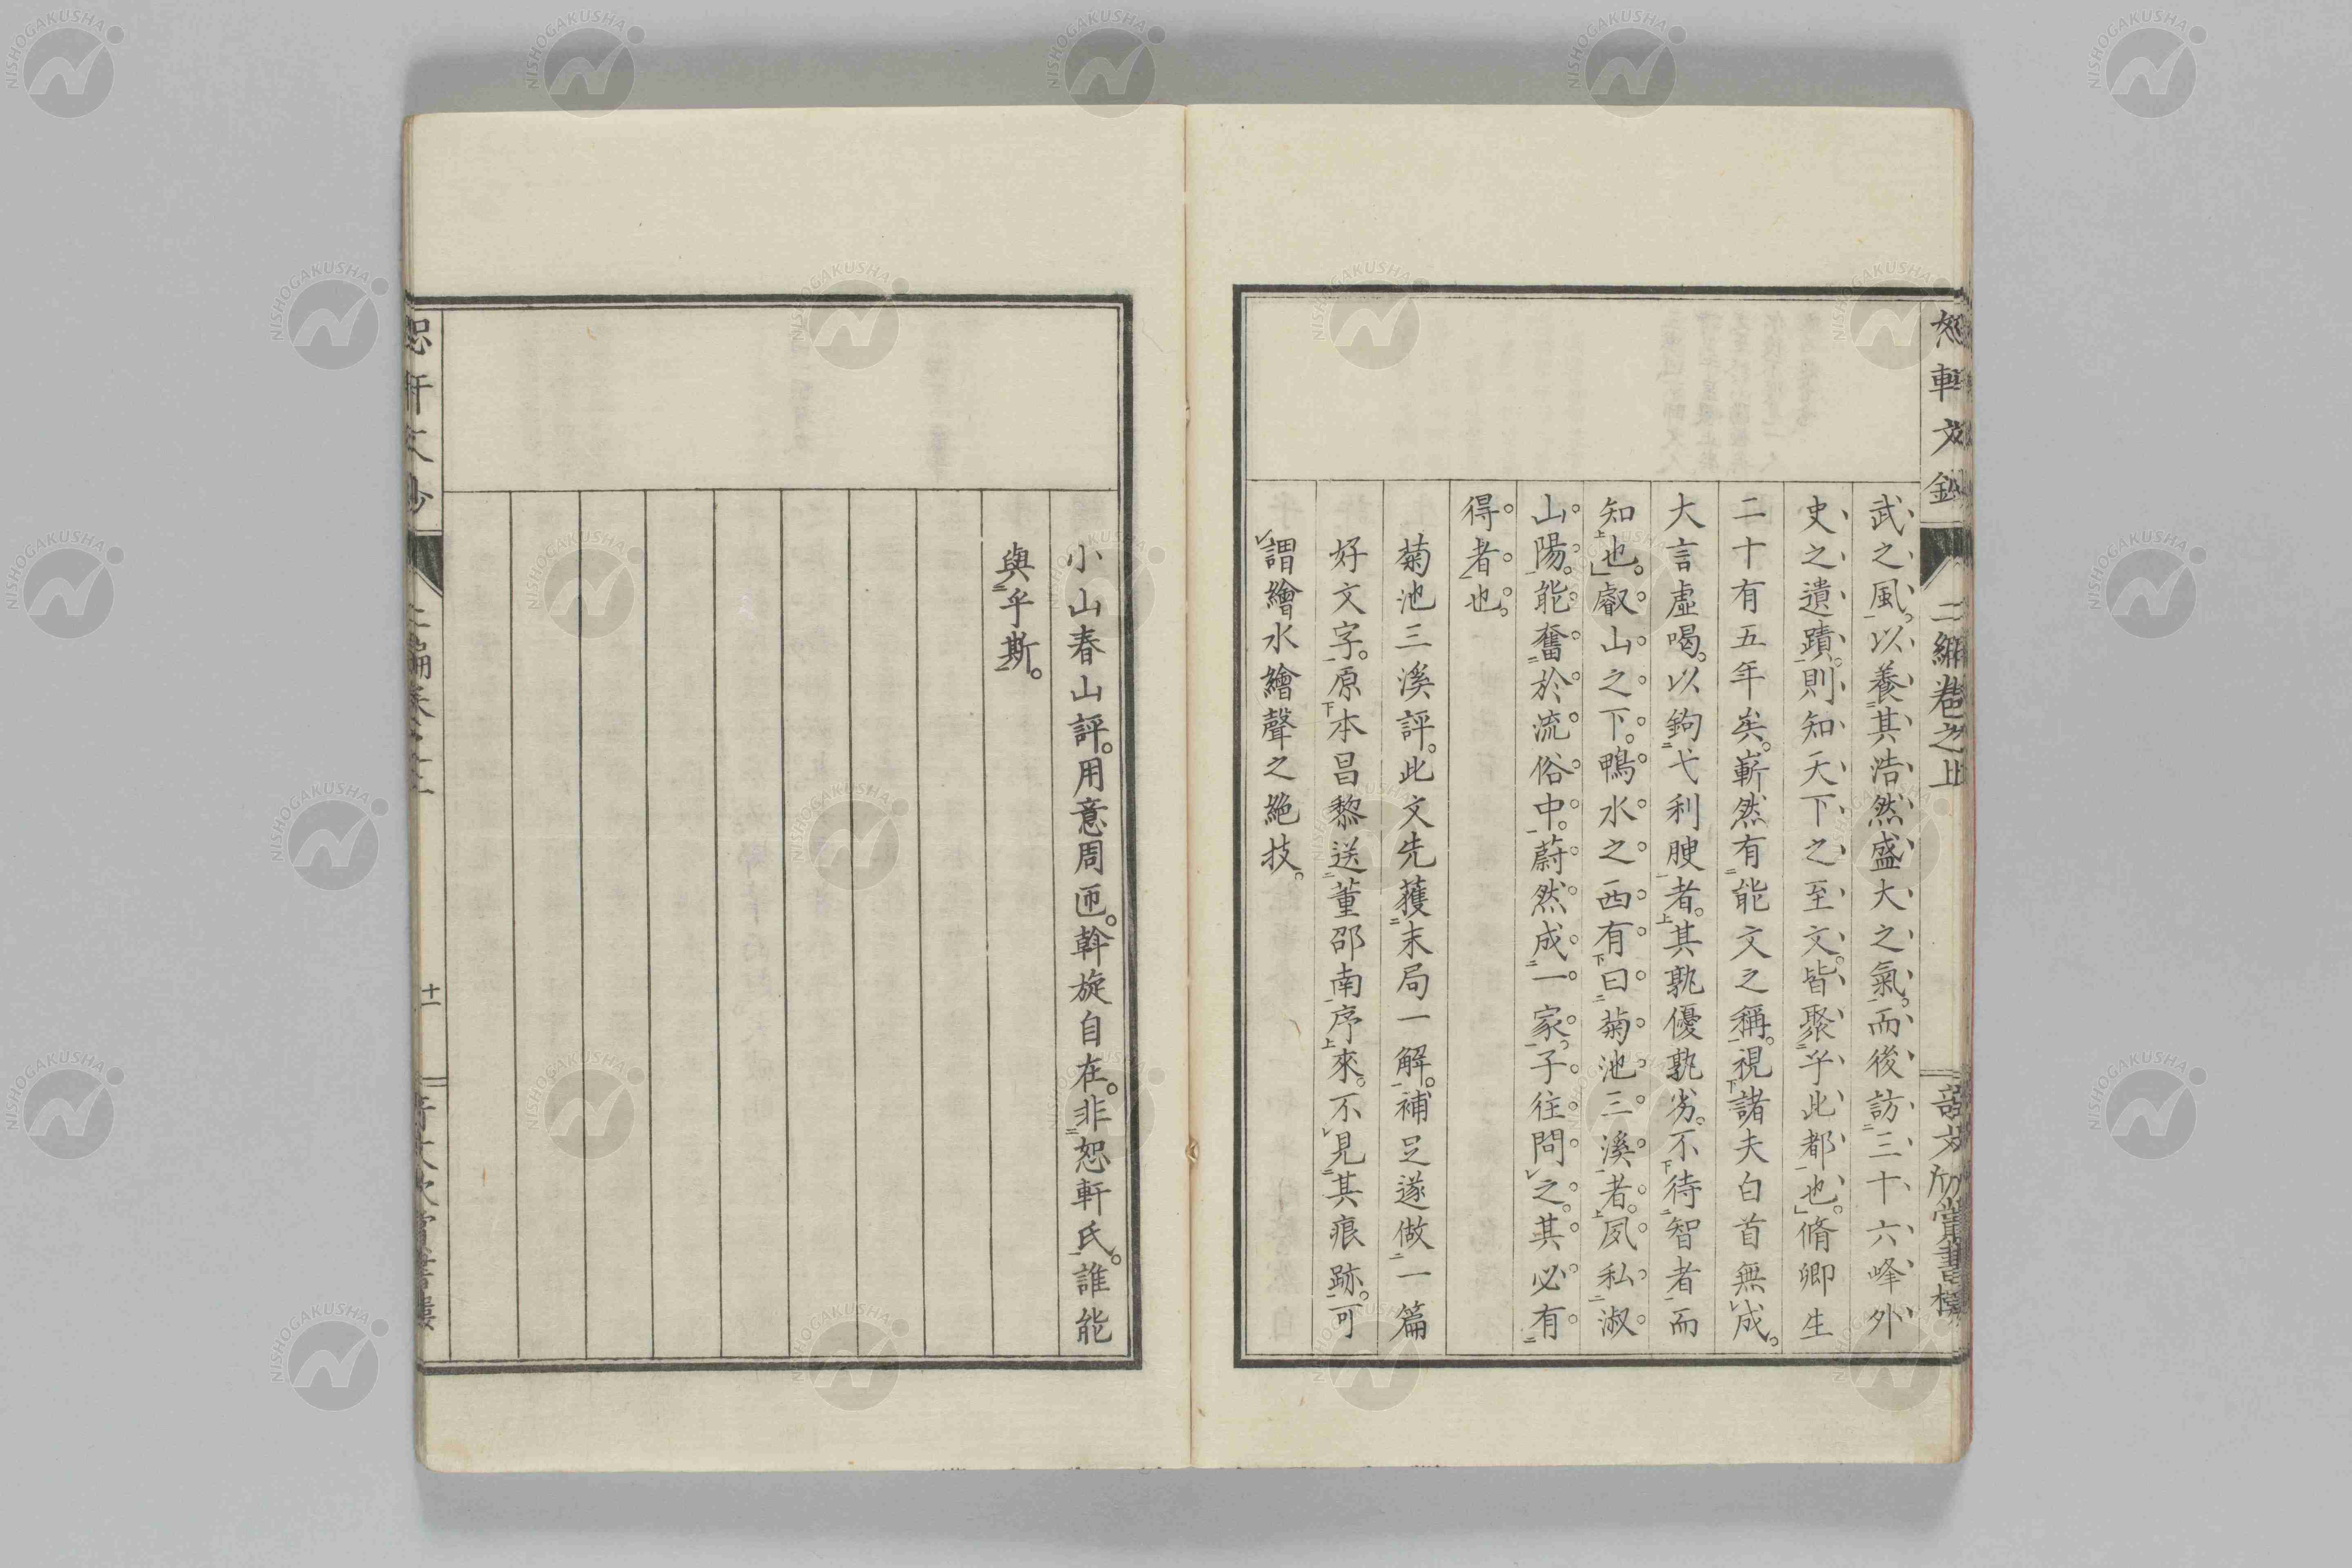 恕軒文鈔
二編卷之上
武之風。以養其浩然盛大之氣。而後訪三十六峰外
史之遺蹟。則知天下之至文。皆聚乎此都也。脩卿生
二十有五年矣。嶄然有能文之稱。視諸夫白首無成。
大言虛喝。以鉤弋利腴者。其孰優孰劣。不待智者而
知也。叡山之下。鴨水之西。有曰菊池三溪者。夙私淑
山陽。能奮於流俗中。蔚然成一家。子往問之。其必有
得者也。
菊池三溪評。此文先獲末局一解。補足遂做一篇
好文字。原本昌黎送董邵南序來。不見其痕跡。可
謂繪水繪聲之絶技。
小山春山評。用意周匝。斡旋自在。非恕軒氏。誰能
與乎斯。
十一
NISHOGAKUSHA